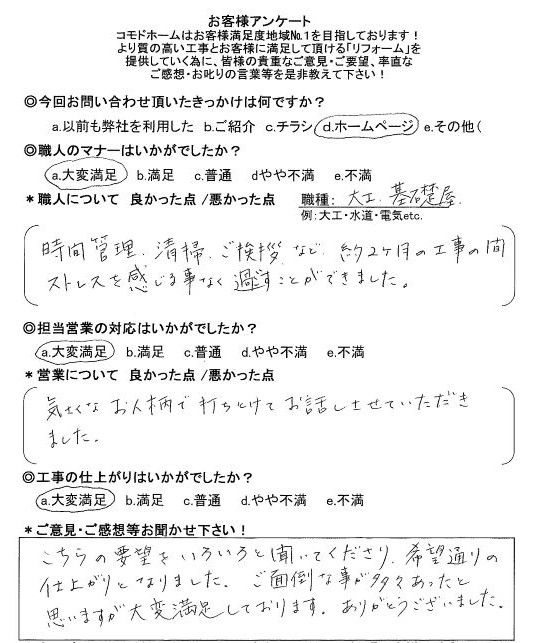 お客様アンケート
コモドホームはお客様満足度地域№1を目指しております！
より質の高い工事とお客様に満足して頂ける「リフォーム」を
提供していく為に、皆様の貴重なご意見・ご要望、率直な
ご感想・お叱りの言葉等を是非教えて下さい！
◎今回お問い合わせ頂いたきっかけは何ですか？
a.以前も弊社を利用した b.ご紹介 c.チラシ d.ホームページ e.その他(
◎職人のマナーはいかがでしたか？
a.大変満足 b.満足 c.普通 dやや不満 e.不満
＊職人について 良かった点 /悪かった点 職種: 大工、基礎屋.
例:大工・水道・電気etc.
時間管理、清掃、ご挨拶など、約2ヶ月の工事の間
ストレスを感じる事なく過ごすことができました。
◎担当営業の対応はいかがでしたか？
a.大変満足 b.満足 c.普通 d.やや不満 e.不満
＊営業について 良かった点 /悪かった点
気さくなお人柄で打ちとけてお話しさせていただき
ました。
◎工事の仕上がりはいかがでしたか？
a.大変満足 b.満足 c.普通 d.やや不満 e.不満
＊ご意見・ご感想等お聞かせ下さい！
こちらの要望をいろいろと聞いてくださり、希望通りの
仕上がりとなりました。ご面倒な事が多々あったと
思いますが大変満足しております。ありがとうございました。